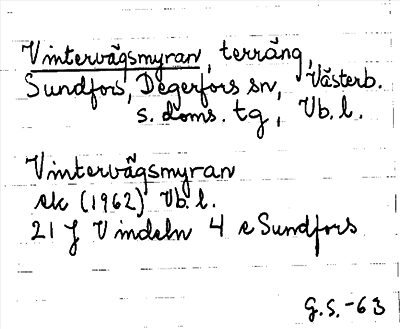 Vintervägsmyran, terräng,
Sundfors, Degerfors sn, Västerb.
s. doms. tg, Vb. l.
Vintervägsmyran
ek (1962) Vb. l.
21 J Vindeln 4 e Sundfors
G.S. -63